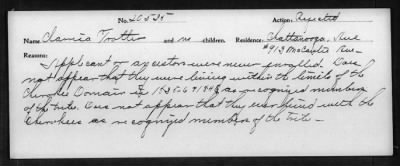 No. 20535 Action: Rejected
Name Clarica Trotter and no children. Residence: Chattanooga, Tenn
#913 McCardie Ave
Reasons:
Applicant or ancestors were never enrolled. Does
not appear that they were living within the limits of the
Cherokee Domain in 1835-6-9/846 as recognized members
of the tribe. Does not appear that they ever lived with the
Cherokees as recognized members of the tribe.-